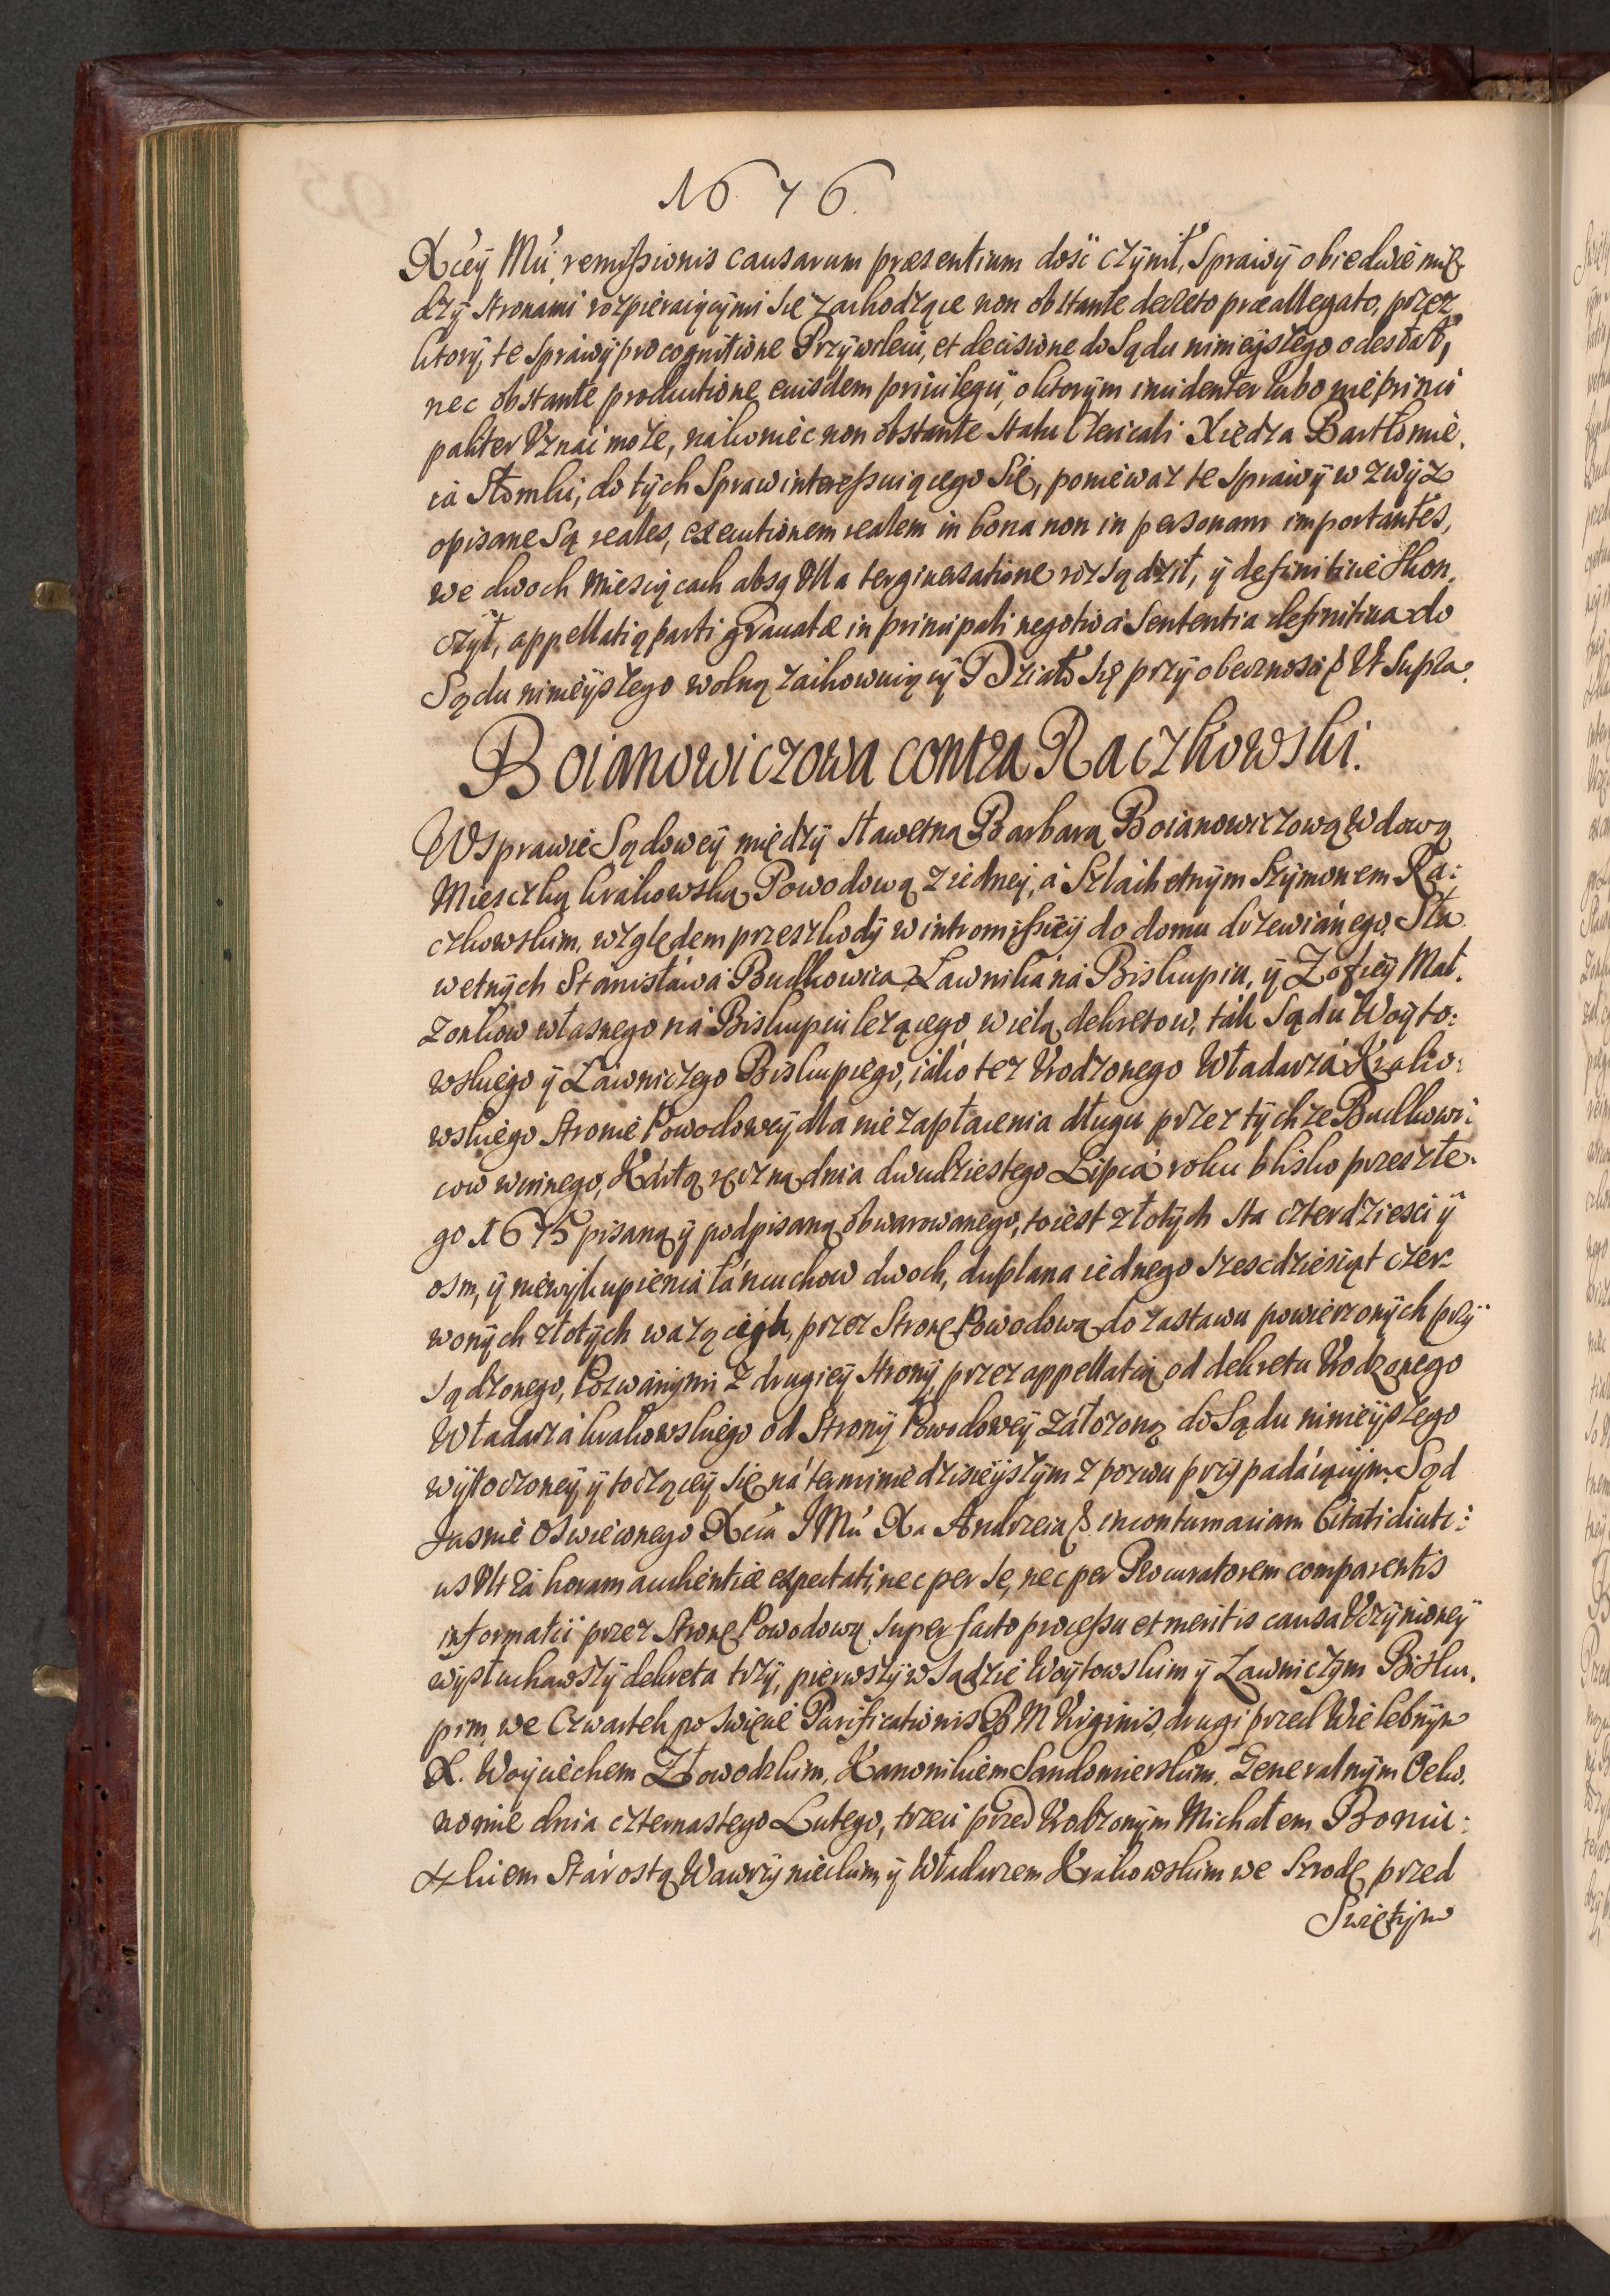 1676.
Xcey Mći remissionis causarum præsentium dość czynił, Sprawy obiedwie mię-
dzy stronami rozpieraiącymi się zachodzące non obstante decreto præallegato, przez
ktory, te sprawy pro cognitione Przywileiu, et decisione do Sądu ninieyszego odesłał,
nec obstante productione eiusdem priuilegij, o ktorym incidenter lubo nie princi
paliter Uznać może, nakoniec non obstante statu Clericali Xiędza Bartłomie,
ia Słomki, do tych Spraw interessuiącego Się, ponieważ te sprawy w zwyż
opisane Są reales, executionem realem in bona non in personam importantes,
we dwoch Miesiącach absq Ulla tergiuersatione rozsądził, y definitiue skon,
czył, appellatią parti grauatæ in principali negotio a Sententia definitiua do
Sądu ninieyszego wolną zachowuiący Działo się przy obecności & Ut Supra.
Boianowiczowa contra Raczkowski.
W Sprawie Sądowey między sławetną Barbarą Boianowiczową Wdową
Mieszczką krakowską Powodową z iedney, á Szlachetnym Szymonem Ra:
czkowskim, względem przeszkody w intromissiey do domu drzewiánego, Sła
wetnych Stánisłáwa Budkowica Ławniká ná Biskupiu, y Zofiey Mał,
żonkow własnego ná Biskupiu leżącego, wielą dekretow, ták Sądu Woyto:
wskiego y Láwniczego Biskupiego, iáko też Urodzonego Włádarzá Krako:
wskiego Stronie Powodowey dla nie zapłacenia długu przez tychże Budkowi:
cow winnego, Kártą ręczną dnia dwudziestego Lipcá roku blisko przeszłe-
go 1675 pisaną y podpisaną obwarowanego, to iest złotych sta czterdzieści y
osm, y niewykupienia łáncuchow dwoch, duplana iednego szescdziesiąt czer-
wonych złotych ważących, przez Stronę Powodową do zastawu powierzonych przy
sądzonego, Pozwánymi z drugiey strony, przez appellatią od dekretu Urodzonego
Włádarzá krakowskiego od Strony Powodowey záłożoną do Sądu ninieyszego
wytoczoney, y toczącey się, ná terminie dzisieyszym z pozwu przypadáiącym. Sąd
Jasnie Oswieconego Xcia J Mći Xa Andrzeia &. in contumaciam Citati diuti:
us Ultra horam authenticæ expectati, nec per se, nec per Procuratorem comparentis
informatii przez Stronę Powodową, super facto processu et meritis causæ Uczynioney
wysłuchawszy dekreta trzy, pierwszy w Sądzie Woytowskim y Lawniczym Bisku,
pim, we Czwartek po święcie Purificationis B M Virginis, drugi przed Wielebnym
X. Woyciechem Złowodzkim, Kanonikiem Sandomierskim, Generalnym Oeko,
nomie dnia czternastego Lutego, trzeci przed Urodzonym Michałem Boniec:
kiem Stárostą Wawrzynieckim, y Władarzem Krakowskim we Szrodę przed
Swiętym